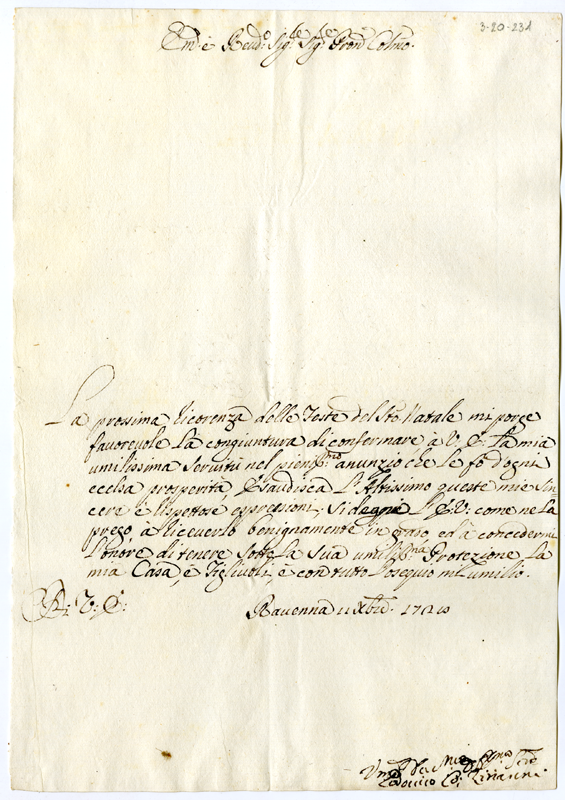 3-20-231
Em.o e Revd.o Sig.re Sig.re Pron Colmo.
La prossima ricorenza delle Feste del Sto Natale mi porge
favorevole la congiuntura di confermare à V. E. la mia
umilissima servitù nel pieniss.mo anunzio che le fò d'ogni
ecelsa prosperità, Esaudisca l'Altissimo queste mie sin
cere è rispettose espressioni, si degni l'E: V: come ne la
prego, à riceverlo benignamente in grado, ed à concedermi
l'onore di tenere sotto la sua Protezione la
mia Casa, è Figliuoli, è con tutto l'osequio mi umilio.
Di V: E:
Ravenna 11 Xbre. 172
Lodovico